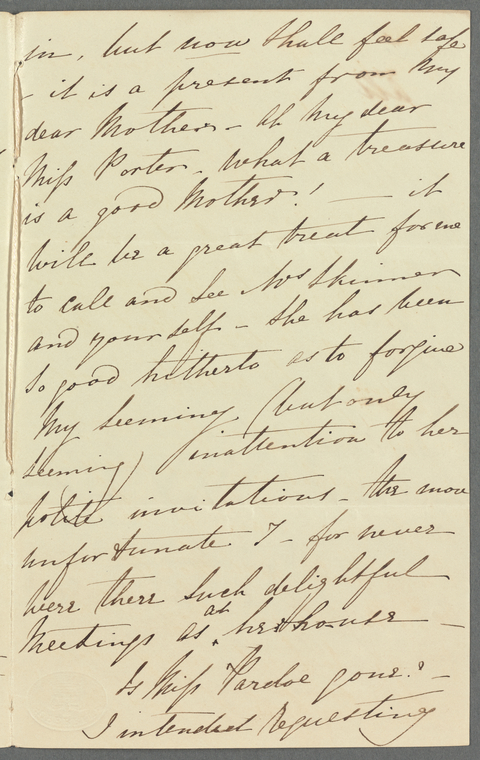 in, but now shall feel safe
- it is a present from my
dear Mother - ah my dear
Miss Porter - what a treasure
is a good Mother! — it
will be a great treat for me
to call and see Mrs Skinner
and yourself - she has been
so good hitherto as to forgive
my seeming (but only
seeming) inattention to her
polite invitations - the more
unfortunate I - for never
were there such delightful
meetings as at her house —
Is Miss Pardoe gone? -
I intended requesting